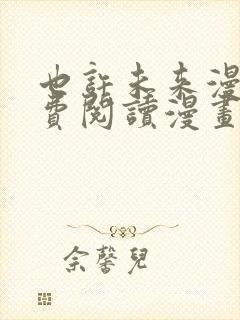 也許未來漫
費閱讀漫畫
佘馨兒